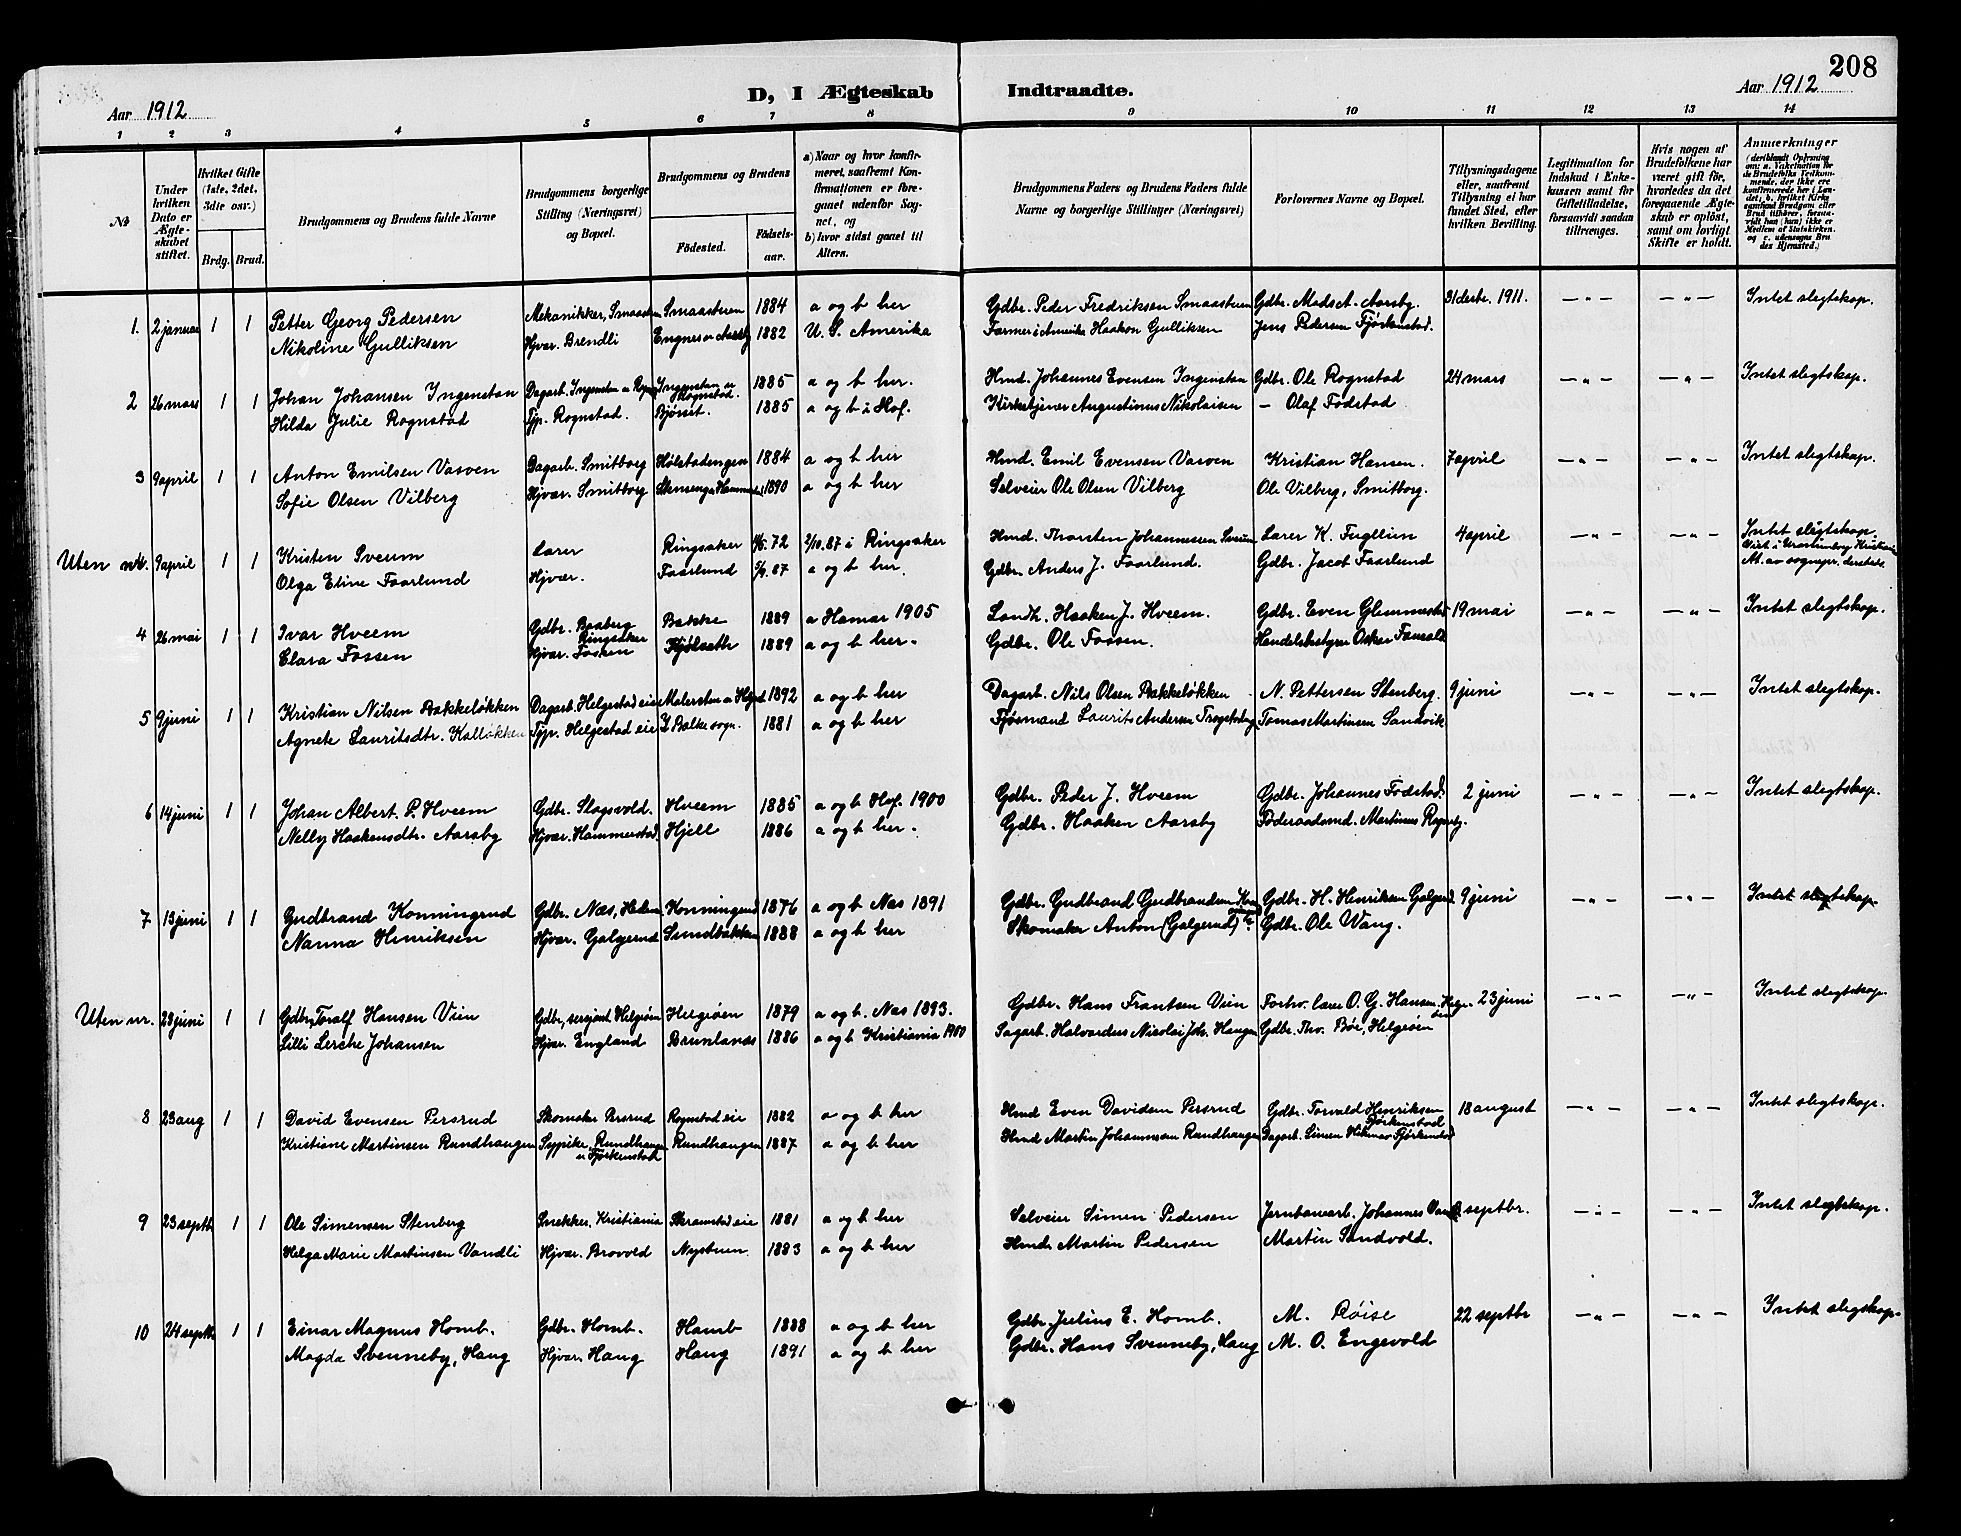 208
D, I Ægteskab Indtraadte.
Aar 1912
Aar 1912
1 2 3 4 5 6 7 8 9 10 11 12 13 14
№
Under hvilken Dato er Ægteskabet stiftet.
Hvilket Gifte (1ste, 2det, 3die osv.)
Brdg. Brud.
Brudgommens og Brudens fulde Navne
Brudgommens borgerlige Stilling (Næringsvei) og Bopæl.
Brudgommens og Brudens
Födested.
Födselsaar.
a) Naar og hvor konfirmeret, saafremt Konfirmationen er foregaaet udenfor Sognet, og
b) hvor sidst gaaet til Alters.
Brudgommens Faders og Brudens Faders fulde Navne og borgerlige Stillinger (Næringsvei)
Forlovernes Navne og Bopæl.
Tillysningsdagene eller, saafremt Tillysning ei har fundet Sted, efter hvilken Bevilling.
Legitimation for Indskud i Enkekassen samt for Giftetilladelse, forsaavidt saadan tiltrænges.
Hvis nogen af Brudefolkene har været gift för, hvorledes da det foregaaende Ægteskab er oplöst, samt om lovligt Skifte er holdt.
Anmerkninger
1. 2 januar 1 1 Petter Georg Pedersen Mekanikker, Smaastuen Smaastuen 1884 a og b her Gdbr. Peder Fredriksen Smaastuen Gdbr. Mads A. Aarsby. 31 decbr. 1911. — " — — " — Intet slegtskap.
Nikoline Gulliksen Hjvær. Brendli 1882 U. S. Amerika Farmer i Amerika Haakon Gulliksen Jens Pedersen Fjørkenstad.
2 26 mars 1 1 Johan Johansen Ingenstan 1885 a og b her. Hmd. Johannes Evensen Ingenstan Gdbr. Ole Rognstad 24 mars — " — — " — Intet slegtskap.
Hilda Julie Rognstad Typ. Rognstad. 1885 a og b i Hof. Kirketjener Augustinus Nikolaisen — Olaf Fodstad
3 9 april 1 1 Anton Emilsen Vasven Dagarb. Smitborg Hølstadengen 1884 a og b her Hmd. Emil Evensen Vasven Kristian Hansen. 7 april — " — — " — Intet slegtskap.
Sofie Olsen Vilberg Hjvær. Smitborg 1890 a og b her Selveier Ole Olsen Vilberg Ole Vilberg, Smitborg.
Uten nr. 9 april 1 1 Kristen Sveum Lærer Ringsaker 72 2/10. 87 i Ringsaker Hmd. Thorsten Johannessen Sveum Lærer K. Fuglien 4 april — " — — " — Intet slegtskap.
Olga Eline Faarlund Hjvær. Faarlund 87 a og b her. Gdbr. Anders J. Faarlund. Gdbr. Jacob Faarlund
4 26 mai 1 1 Ivar Hveem Gdbr. Baaberg Ringsaker Bakke 1889 a Hamar 1905 Landh. Haaken J. Hveem. Gdbr. Even Glemmestad 19 mai — " — — " — Intet slegtskap.
Clara Fossen Hjvær. Fossen Kjölseth 1889 a og b her. Gdbr. Ole Fossen.
5 9 juni 1 1 Kristian Nilsen Bakkeløkken Dagarb. Helgestad eie 1892 a og b her Dagarb. Nils Olsen Bakkeløkken N. Pettersen Stenberg. 9 juni — " — — " — Intet slegtskap.
Agnete Lauritsdtr. Kalløkken Typ. Helgestad eie I Balke sogn. 1881 a og b her Fjøsmand Laurits Andersen Tomas Martinsen Sandvik
6 14 juni 1 1 Johan Albert P. Hveem Gdbr. Slagsvold. Hveem 1885 a og b Hof. 1900 Gdbr. Peder J. Hveem Gdbr. Johannes Fodstad. 2 juni — " — — " — Intet slegtskap.
Nelly Haakensdtr. Aarsby Hjvær. Hammerstad Hjell 1886 a og b her. Gdbr. Haaken Aarsby Føderaadsmd. Martinus
7 13 juni 1 1 Gudbrand Konningrud Gdbr. Næs, Hedm. Konningrud 1876 a og b Næs 1891 Gdbr. Gudbrand Gudbrandsen Gdbr. H. Henriksen Galgerud 9 juni — " — — " — Intet slegtskap.
Nanna Henriksen Hjvær. Galgerud Sundbakken 1888 a og b her Skomaker Anton (Galgerud) Gdbr. Ole Wang.
Uten nr. 28 juni 1 1 Gdbr. Toralf Hansen Vien Gdbr., sersjant Helgøen Helgøen 1879 a og b. Næs 1893. Gdbr. Hans Frantsen Vien Forhv. lærer O. G. Hansen. 23 juni — " — — " — Intet slegtskap.
Lilli Lerche Johansen Hjvær. England Brunlanæs 1886 a og b Kristiania 1900 Sagarb. Halvarders Nicolai Joh. Haugen Gdbr. Thv. Bøe, Helgøen
8 23 aug 1 1 David Evensen Persrud Skomaker Persrud Rognstad eie 1882 a og b her Hmd Even Davidsen Persrud Gdbr. Torvald Henriksen Fjørkenstad 18 august — " — — " — Intet slegtskap.
Kristiane Martinsen Rundhaugen Sypike Rundhaugen u Fjørkenstad Rundhaugen 1887 a og b her Hmd Martin Johannessen Rundhaugen Dagarb. Simen Fjørkenstad
9 23 septb 1 1 Ole Simensen Stenberg Snekker, Kristiania Skramstad eie 1881 a og b her Selveier Simen Pedersen Jernbanearb. Johannes septbr. — " — — " — Intet slegtskap.
Helga Marie Martinsen Vandli Hjvær. Brovold Nystuen 1883 a og b her Hmd. Martin Pedersen Martin Sandvold.
10 24 septb 1 1 Einar Magnus Homb. Gdbr. Homb. Homb 1888 a og b her Gdbr. Julius E. Homb. M. Röise 22 septbr — " — — " — Intet slegtskap.
Magda Svenneby, Haug Hjvær. Haug Haug 1891 a og b her Gdbr. Hans Svenneby, Haug M. O. Engevold